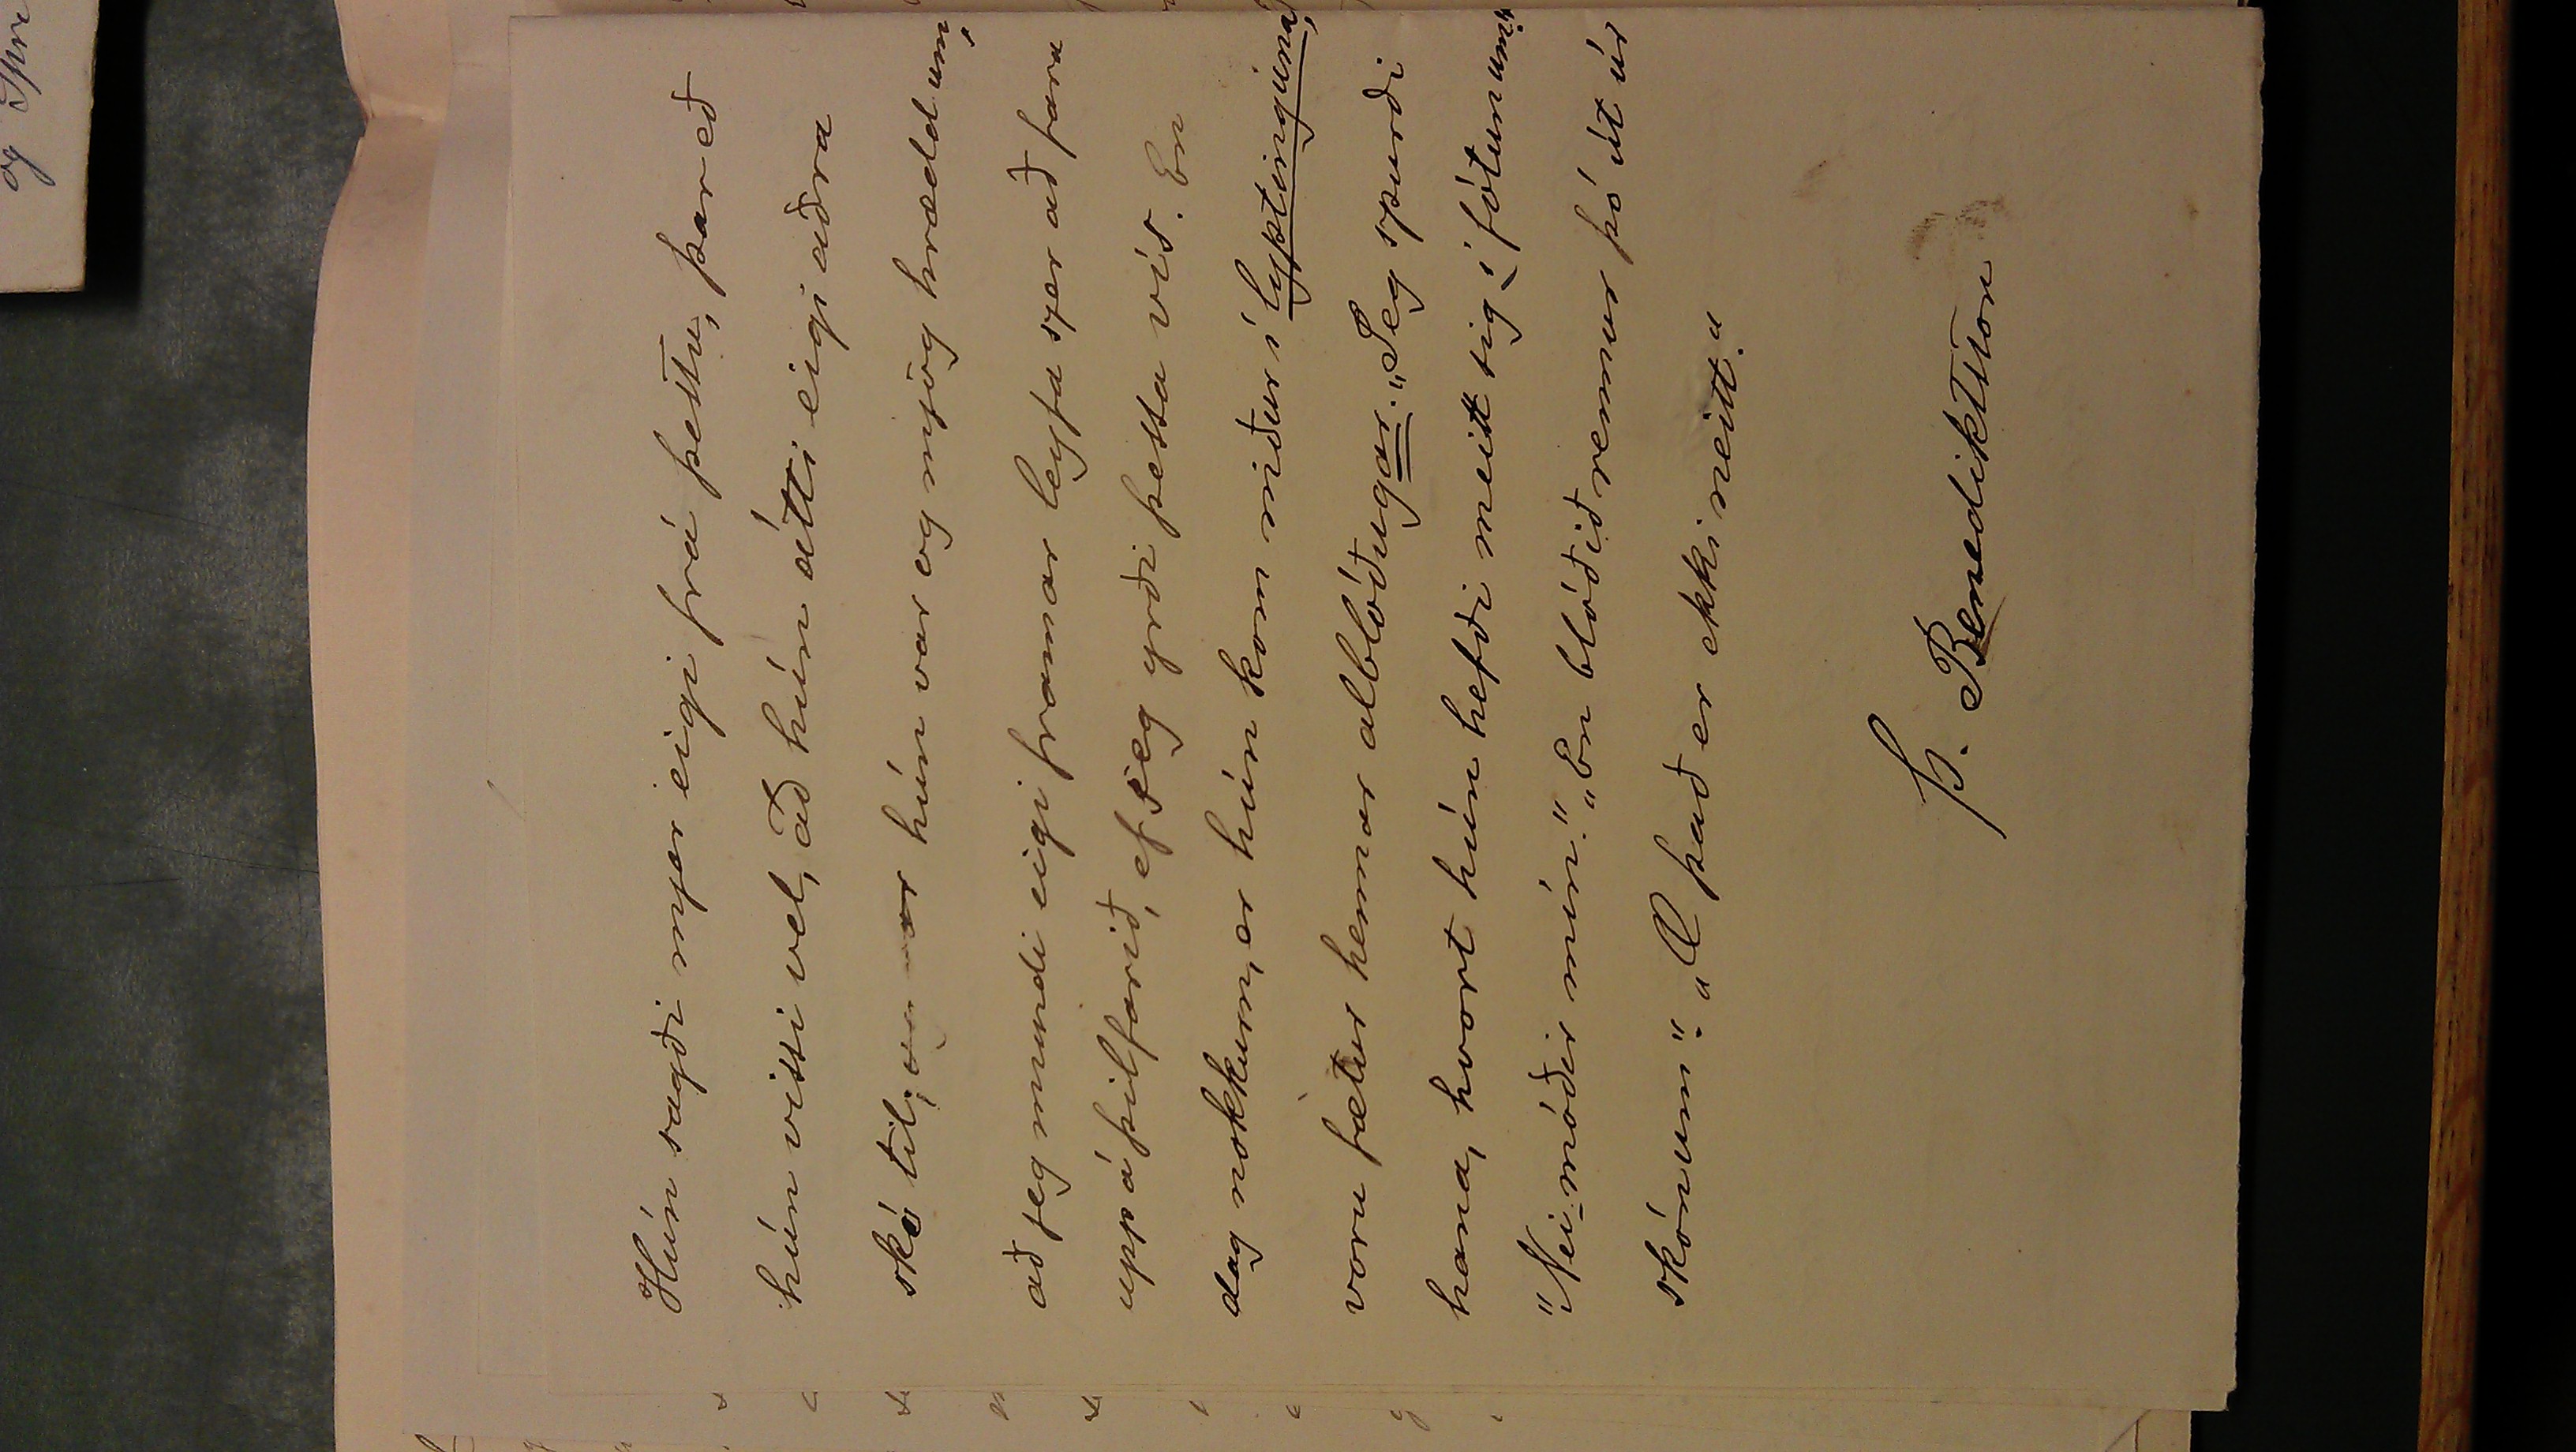 Hún sagði mjer eigi frá þessu, þar eð
hún vissi vel, að hún átti eigi aðra
skó til, var hún og mjög hrædd um,
að jeg mundi eigi framar leyfa sjer að fara
upp á þilfarið, ef jeg yrði þessa vís. En
dag nokkurn, er hún kom niður í lyptinguna,
voru fætur hennar alblóðugar. „Jeg spurði
hana, hvort hún hefði meitt sig í fótunum".
"Nei móðir mín." „En blóðið rennur þó út úr
skónum". „Ó það er ekki neitt."
Þ. Benediktsson
og Spur